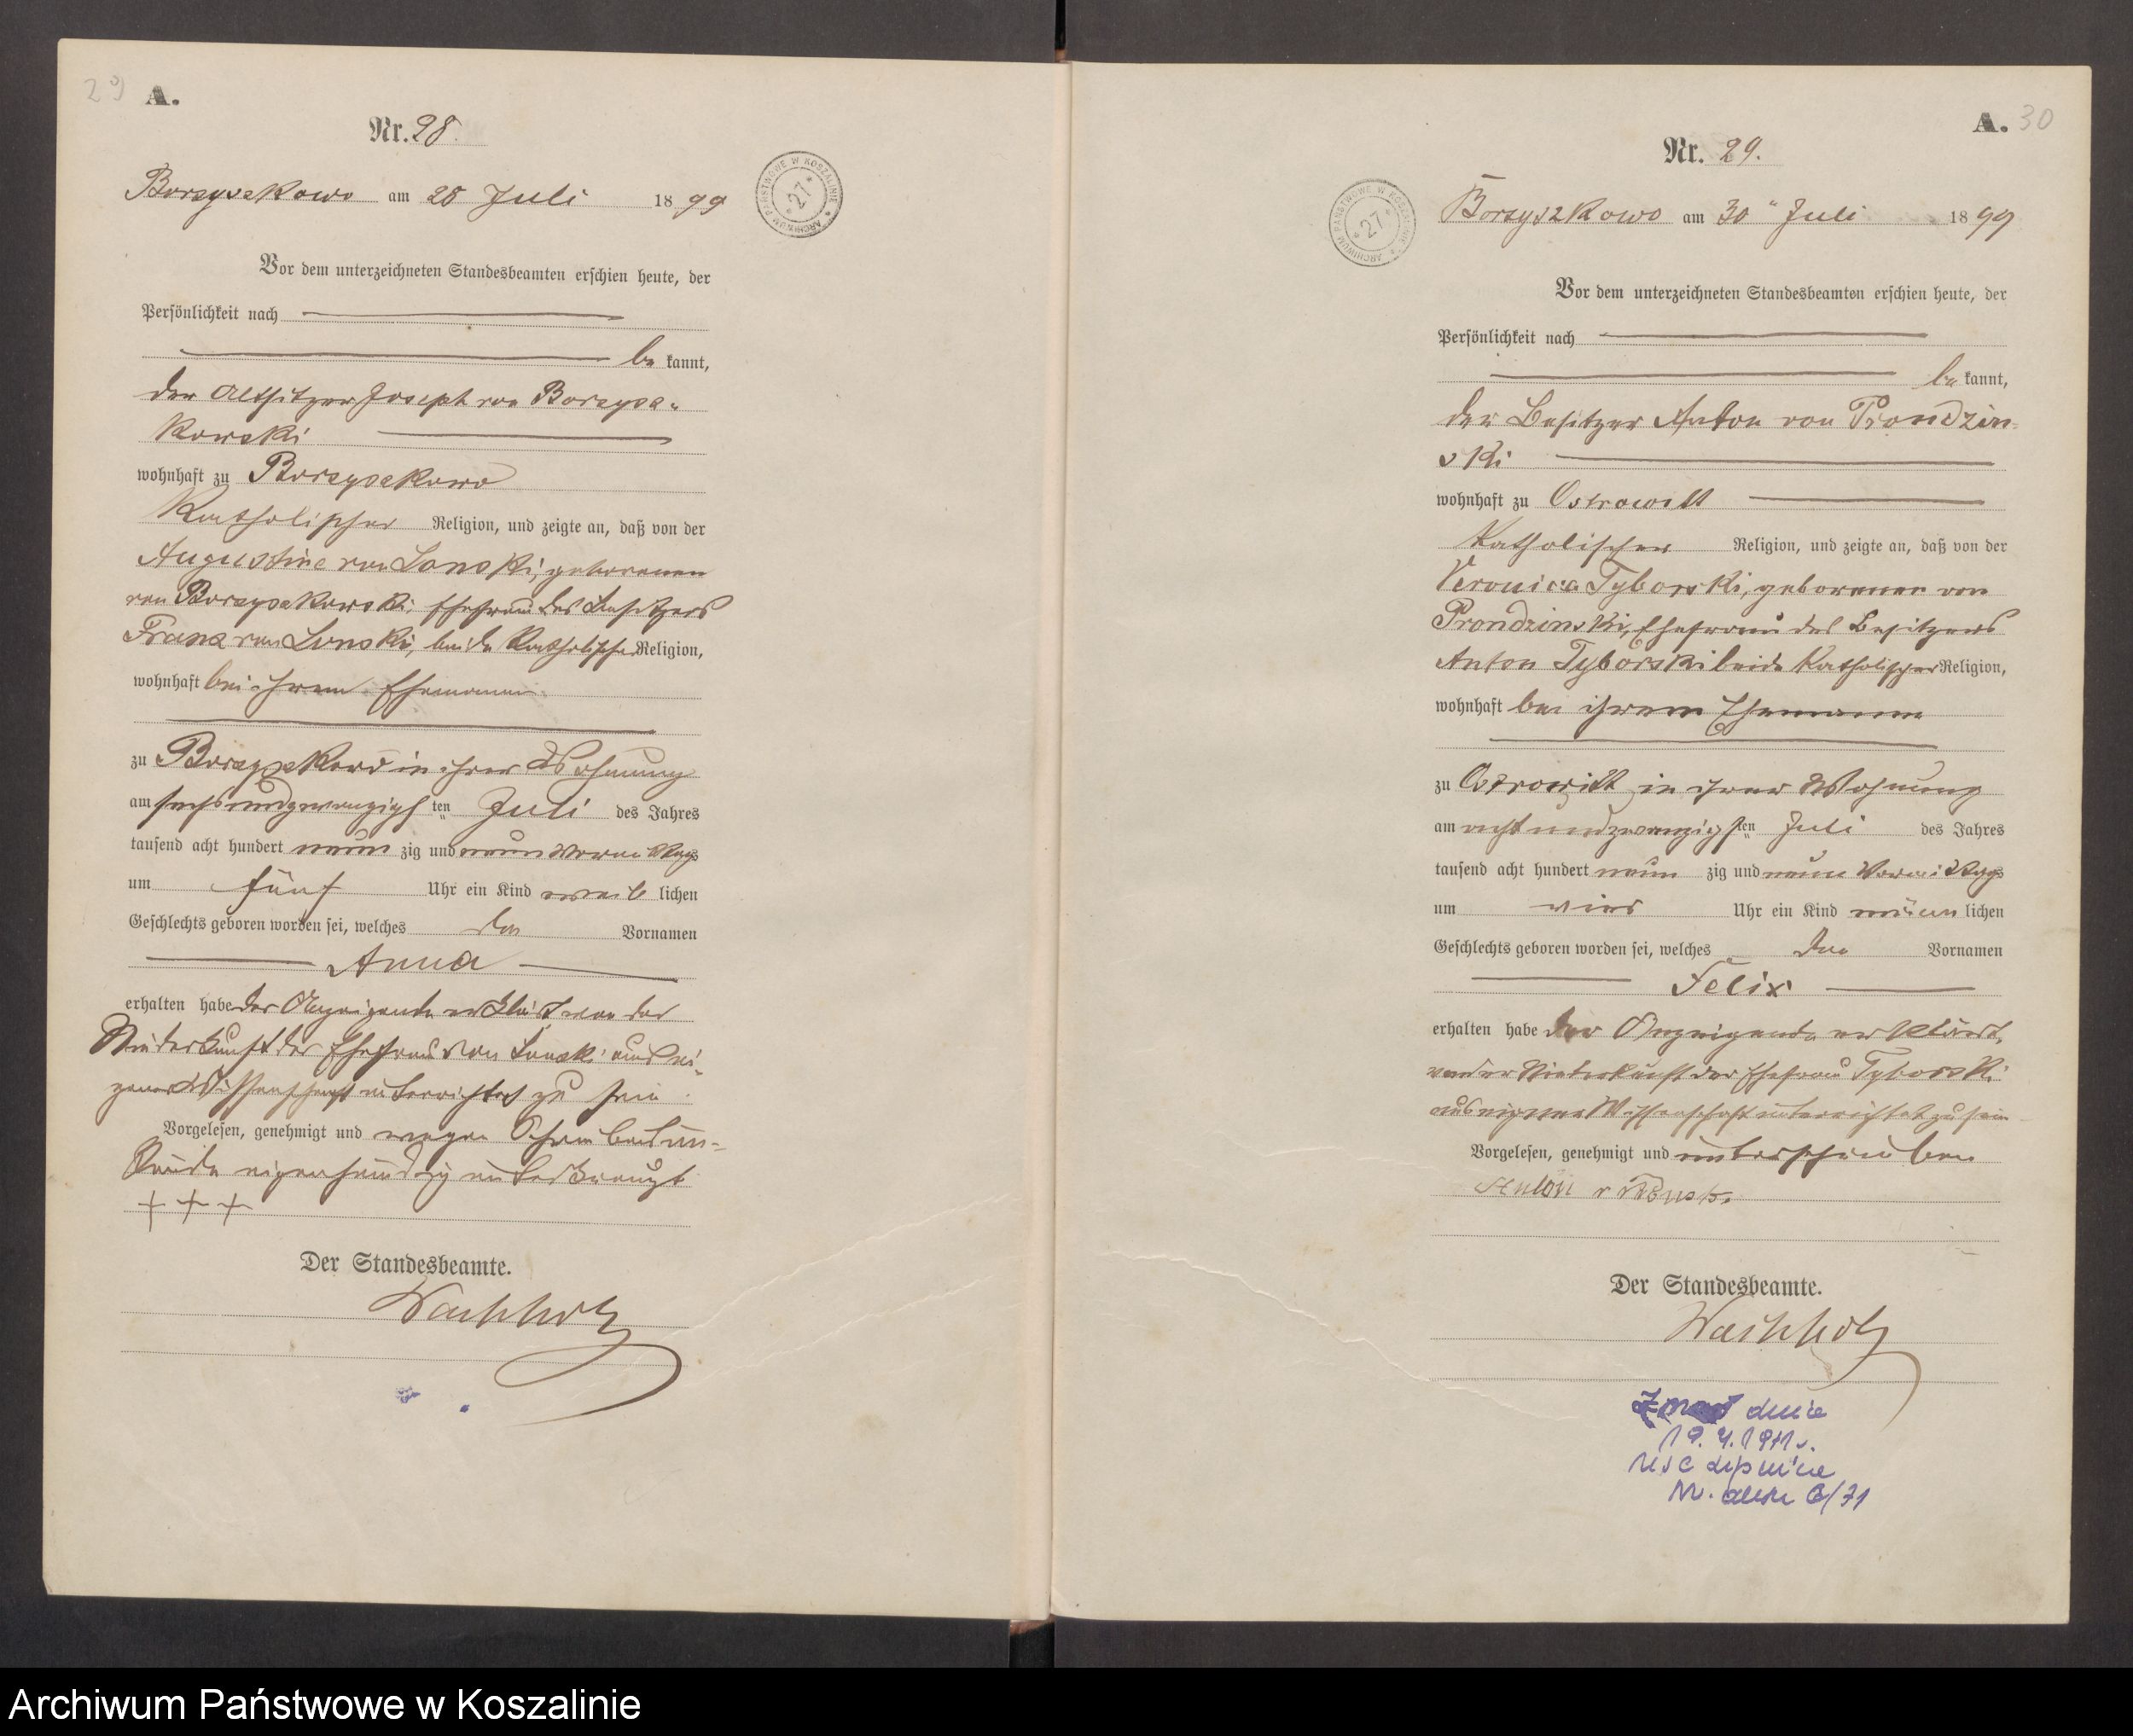 29 A.
Nr. 28.
Borzyszkowo am 28 Juli 1899
ARCHIWUM PAŃSTWOWE W KOSZALINIE * 27 *
Vor dem unterzeichneten Standesbeamten erschien heute, der
Persönlichkeit nach
be kannt,
der Altsitzer Joseph von Borzysz-
kowski
wohnhaft zu Borzyszkowo
Katholischer Religion, und zeigte an, daß von der
Augustine von Lonski, geborenen
von Borzyszkowski, Ehefrau des Besitzers
Franz von Lonski, beide Katholischer Religion,
wohnhaft bei ihrem Ehemanne
zu Borzyszkowo in ihrer Wohnung
am sechsundzwanzigsten Juli des Jahres
tausend acht hundert neun zig und neun Vormittags
um fünf Uhr ein Kind weib lichen
Geschlechts geboren worden sei, welches den Vornamen
Anna
erhalten habe der Anzeigende erklärt von der
Niederkunft der Ehefrau von Lonski aus ei-
gener Wissenschaft unterrichtet zu sein.
Vorgelesen, genehmigt und wegen Schreibensun-
kunde eigenhändig unterkreuzt
+ + +
Der Standesbeamte.
Wachholz
A. 30
Nr. 29.
ARCHIWUM PAŃSTWOWE W KOSZALINIE * 27 *
Borzyszkowo am 30 " Juli 1899
Vor dem unterzeichneten Standesbeamten erschien heute, der
Persönlichkeit nach
be kannt,
der Besitzer Anton von Prondzin-
ski
wohnhaft zu Ostrowitt
Katholischer Religion, und zeigte an, daß von der
Veronica Tyborski, geborenen von
Prondzinski, Ehefrau des Besitzers
Anton Tyborski beide Katholischer Religion,
wohnhaft bei ihrem Ehemanne
zu Ostrowitt in ihrer Wohnung
am achtundzwanzigsten Juli des Jahres
tausend acht hundert neun zig und neun Vormittags
um vier Uhr ein Kind männ lichen
Geschlechts geboren worden sei, welches den Vornamen
Felix
erhalten habe der Anzeigende erklärt,
von der Niederkunft der Ehefrau Tyborski
aus eigener Wissenschaft unterrichtet zu sein
Vorgelesen, genehmigt und unterschrieben
Anton v
Der Standesbeamte.
Wachholz
Zmarł dnia
19.4.1971 r.
USC Lipnica
Nr. aktu 6/71
Archiwum Państwowe w Koszalinie